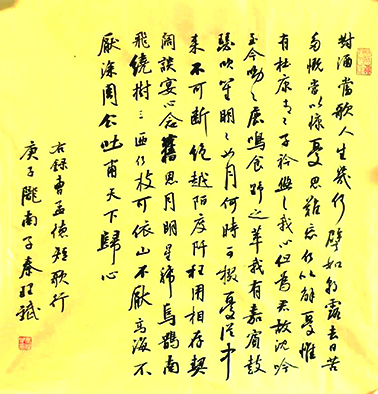 對酒當歌人生幾何譬如朝露去日苦
多慨當以慷憂思難忘何以解憂惟
有杜康青々子衿悠々我心但為君故沈吟
至今呦々鹿鳴食野之苹我有嘉賓鼓
瑟吹笙明々如月何時可掇憂從中
來不可斷絕越陌度阡枉用相存契
闊談宴心念舊恩月明星稀烏鵲南
飛繞樹三匝何枝可依山不厭高海不
厭深周公吐甫天下歸心
右錄曹孟德短歌行
庚子隴南子秦